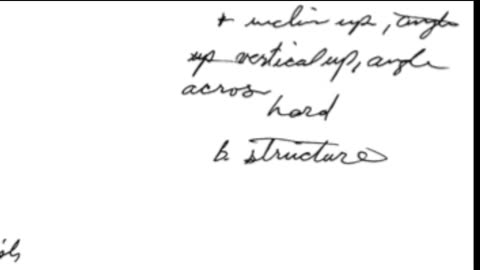 + inclin up, angle
up vertical up, angle
across
hard
b. structure